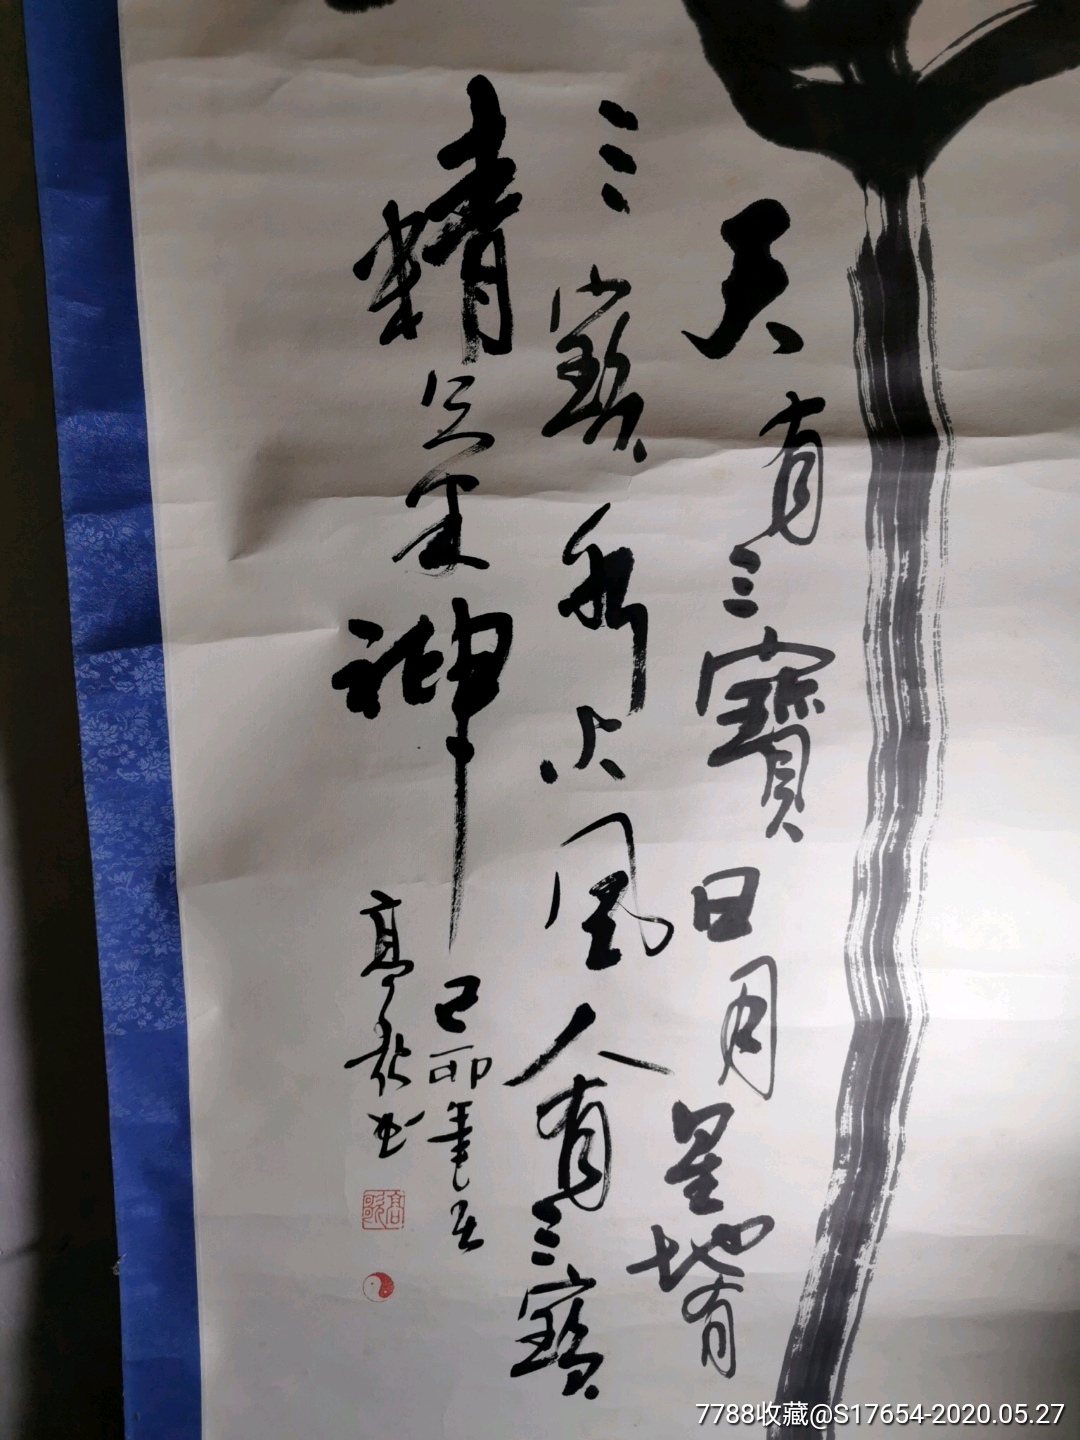 天有三寶日月星地有
三寶水火風人有三寶
精氣神
己卯年
高歌书
高歌
7788收藏@S17654-2020.05.27